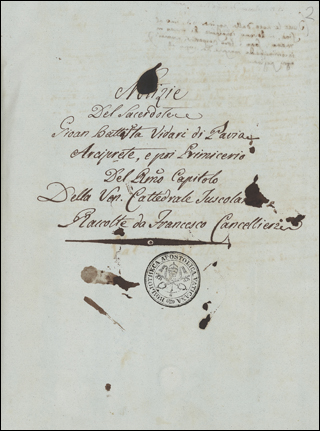 2
Notizie
Del Sacerdote
Gioan Battista Vidari di Pavia
Arciprete, e poi Primicerio
Del Rmo Capitolo
Della Ven. Cattedrale Tuscolana
Raccolte da Francesco Cancellieri
BIBLIOTHECA APOSTOLICA VATICANA